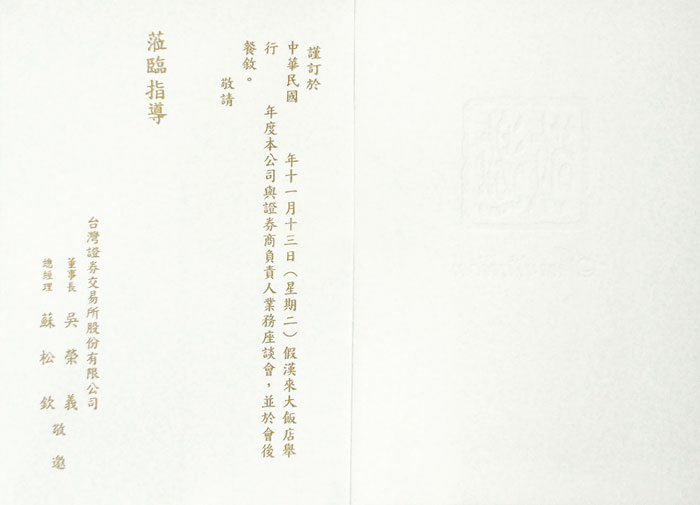 謹訂於
中華民國 年十一月十三日(星期二)假漢來大飯店舉
行 年度本公司與證券商負責人業務座談會,並於會後
餐敘。
敬請
蒞臨指導
台灣證券交易所股份有限公司
董事長 吳榮義
總經理 蘇松欽
敬邀